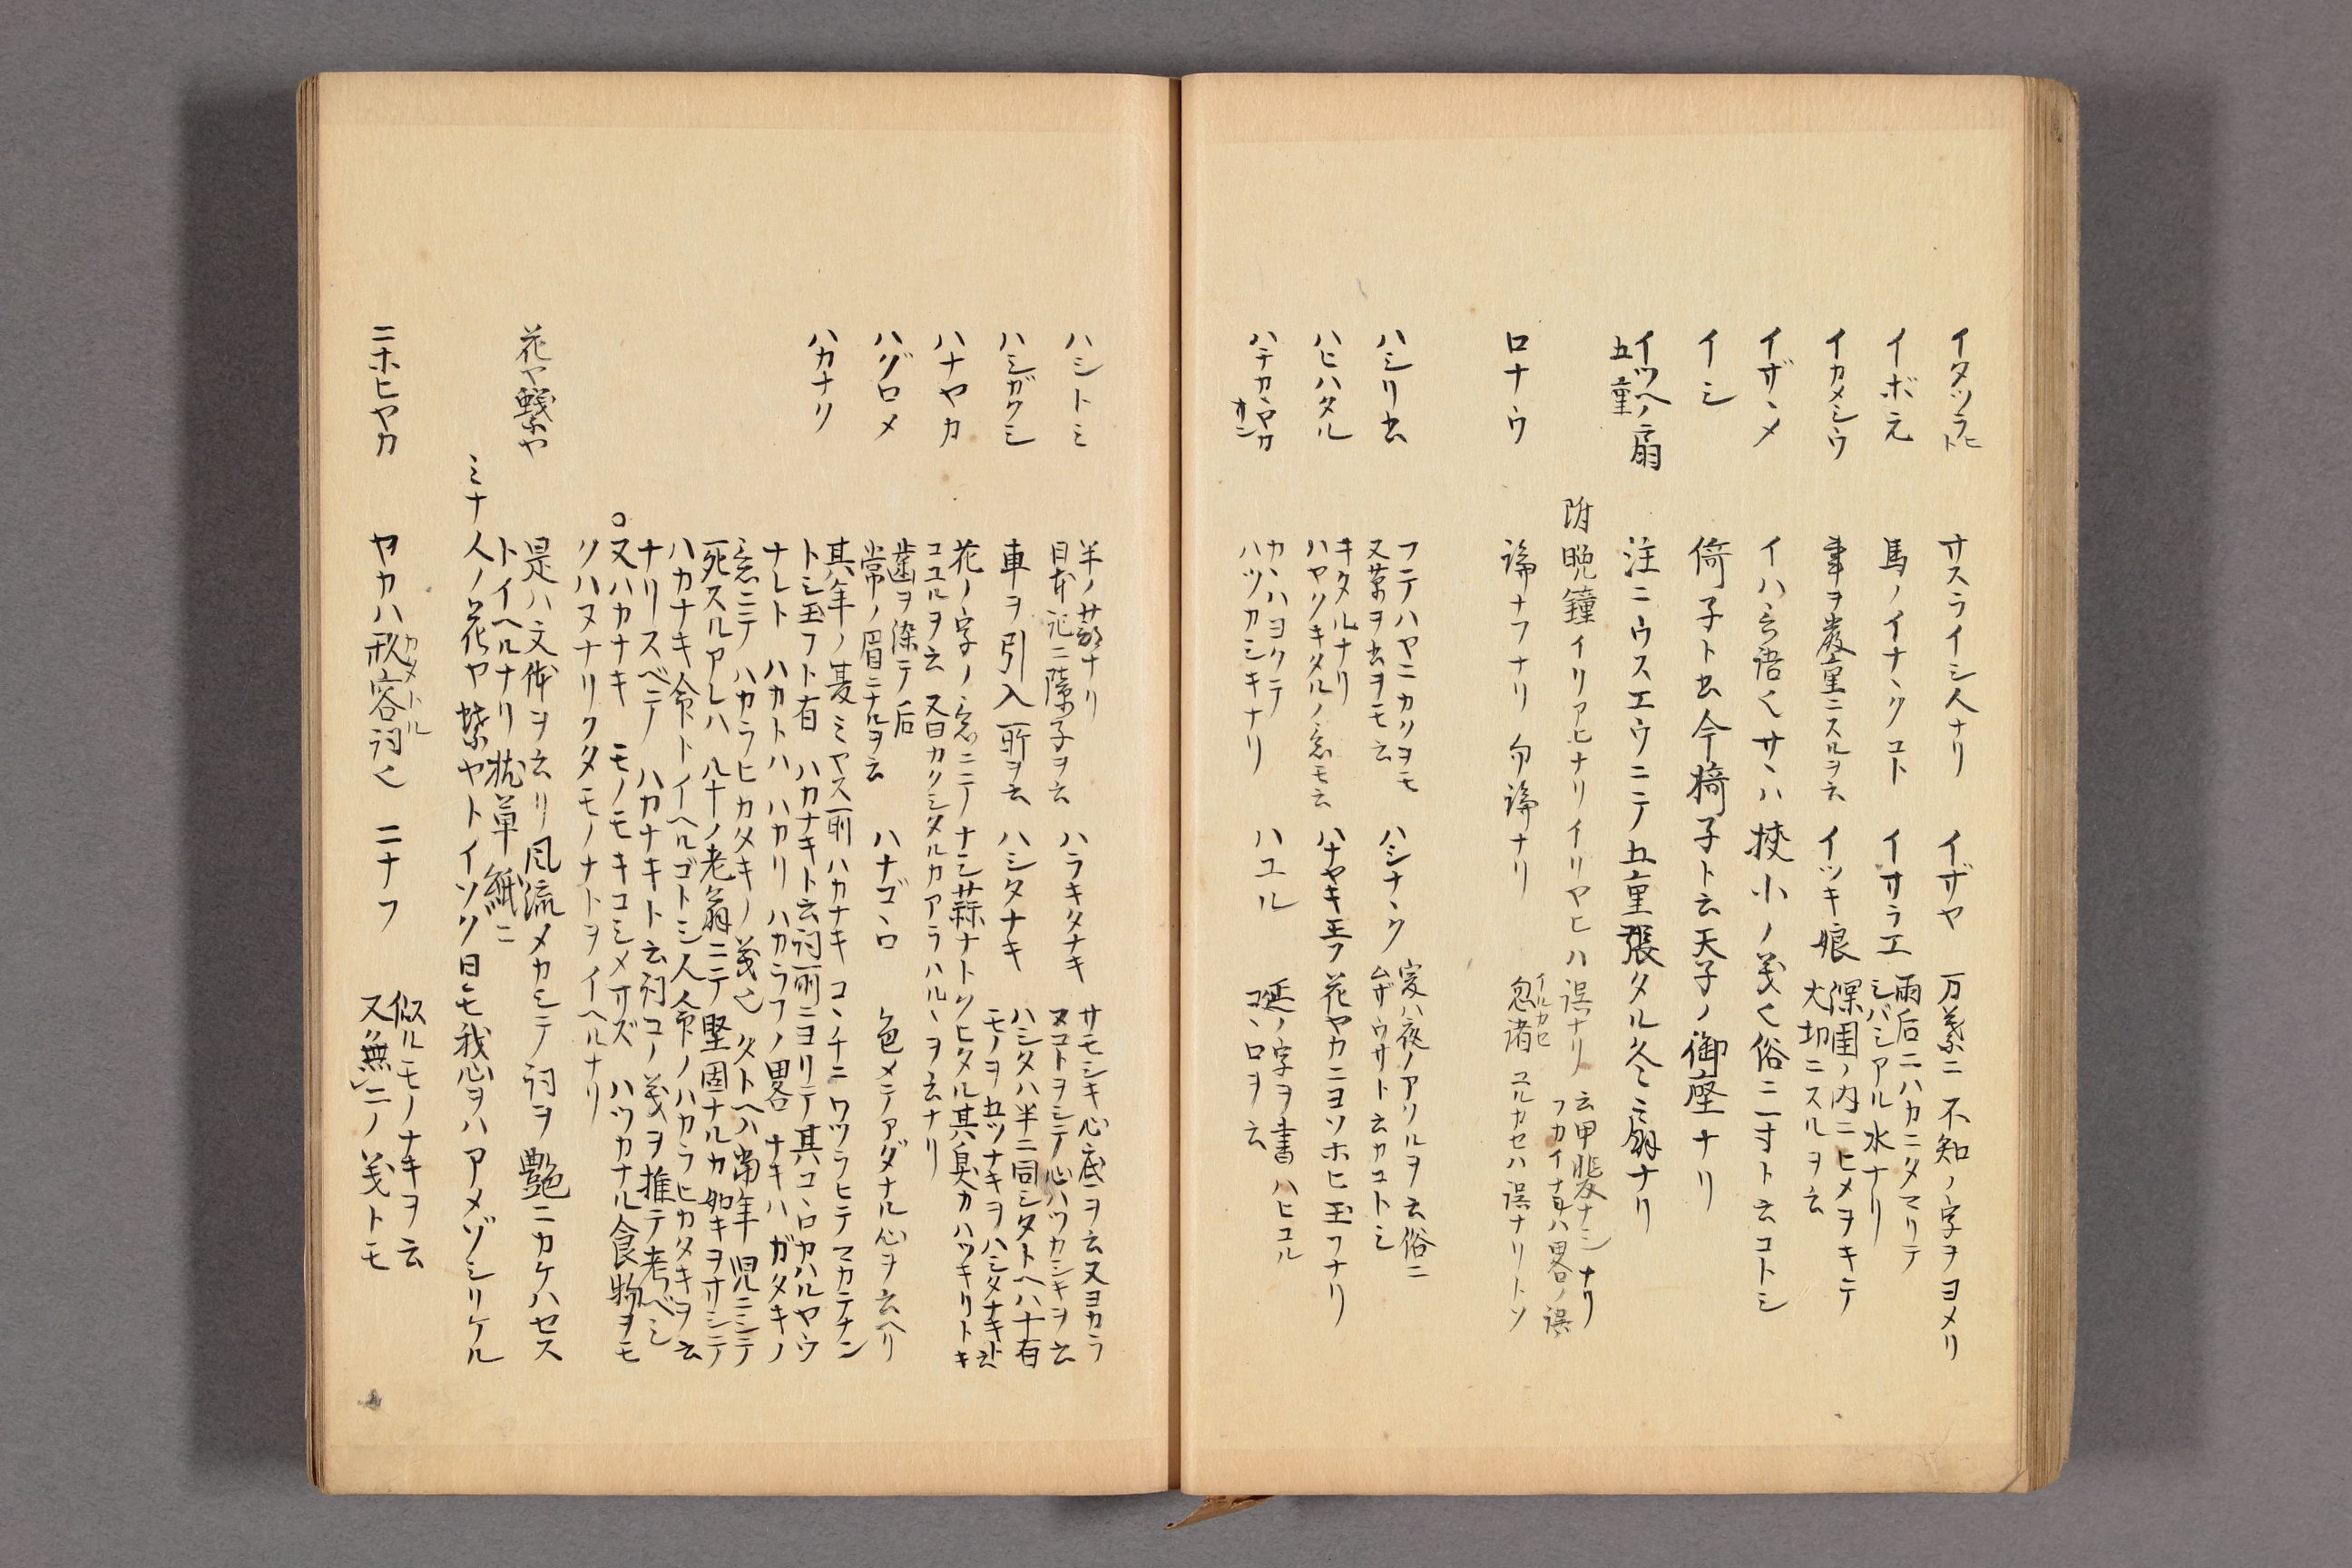 イタツラヒト　サスライシ人ナリ　イザヤ　万葉ニ不知ノ字ヲヨメリ
イボ元　馬ノイナヽクコト　イサラエ　雨后ニハカニタマリテ
シバシアル水ナリ
イカメシウ　事ヲ嚴重ニスルヲ云　イツキ娘　深閨ノ内ニヒメヲキテ
大切ニスルヲ云
イザヽメ　イハ言語也サヽハ挾小ノ義也俗ニ一寸ト云コトシ
イシ　倚子ト出今椅子ト云天子ノ御座ナリ
イツヘノ扇
五重　注ニウスエウニテ五重張タル 扇ナリ
附 晩鐘 イリアヒナリイリヤヒハ誤ナリ 云甲斐ナシナリ
フカイナキハ畧ノ誤
ロナウ　論ナフナリ 勿論ナリ　忽諸 イルカセ ユルカセハ誤ナリトソ
ハシリ出　フテハヤニカクヲモ
又草ヲ出ヲモ云　ハシナヽク　宴ハ夜ノアソルヲ云俗ニ
ムザウサト云カコトシ
ハヒハタル　キタルナリ
ハヤリキタルノ意モ云　ハナヤキ玉フ　花ヤカニヨソホヒ玉フナリ
ハテカヽヤカ　カヽハヨクテ
ハツカシキナリ　ハユル　延ノ字ヲ書ハヒコル
コヽロヲ云
ハシトミ　半ノ蔀ナリ
日本記ニ障子ヲ云　ハラキタナキ　サモシキ心底ヲ云又ヨカラ
ヌコトヲシテ心ハツカシキヲ云
ハシガクシ　車ヲ引入所ヲ云　ハシタナキ　ハシタハ半ニ同シタトヘハ十有
モノヲ五ツナキヲハシタナキト云
ハナヤカ　花ノ字ノ意ニテナシ蒜ナトクヒタル其臭カハツキリトキ
コユルヲ云 又曰カクシタルカアラハルヽヲ云ナリ
ハグロメ　歯ヲ染テ后
常ノ眉ニナルヲ云　ハナゴヽロ　色メテアダナル心ヲ云ヘリ
ハカナリ　其年ノ夏ミヤス所ハカナキコヽチニワツラヒテマカテナン
トシ玉フト有 ハカナキト云詞所ニヨリテ其コヽロカハルヤウ
ナレト ハカトハハカリ ハカラフノ畧 ナキハガタキノ
意ニテ ハカラヒカタキノ義也 タトヘハ當年児ニシテ
死スルアレハ 八十ノ老翁ニテ堅固ナルカ如キヲサシテ
ハカナキ命トイヘルゴトシ人命ノハカラヒカタキヲ云
ナリスベテ ハカナキト云詞コノ義ヲ推テ考ベシ
○又ハカナキ モノモキコシメサズ ハツカナル食物ヲモ
クハヌナリクタモノナトヲイヘルナリ
花ヤ蝶ヤ　是ハ文体ヲ云リ風流メカシテ詞ヲ艶ニカケハセス
トイヘルナリ 枕草紙ニ
ミナ人ノ花ヤ蝶ヤトイソク日モ我心ヲハアメゾシリケル
ニホヒヤカ　ヤカハ 容詞也　ニナフ　似ルモノナキヲ云
又無二ノ義トモ